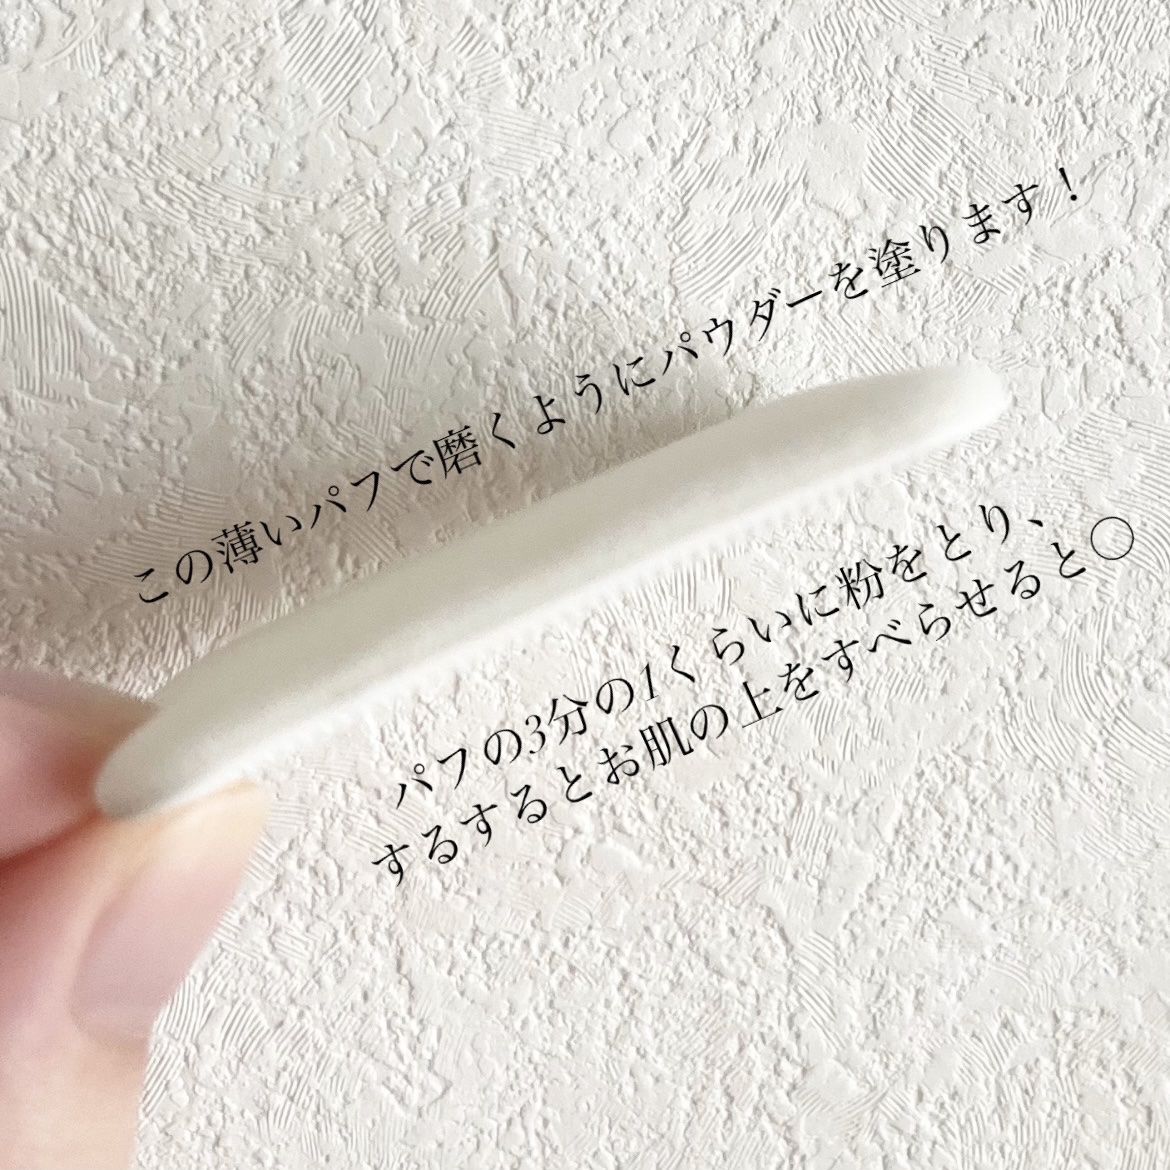 この薄いパフで磨くようにパウダーを塗ります！
パフの3分の1くらいに粉をとり、
するするとお肌の上をすべらせると◯